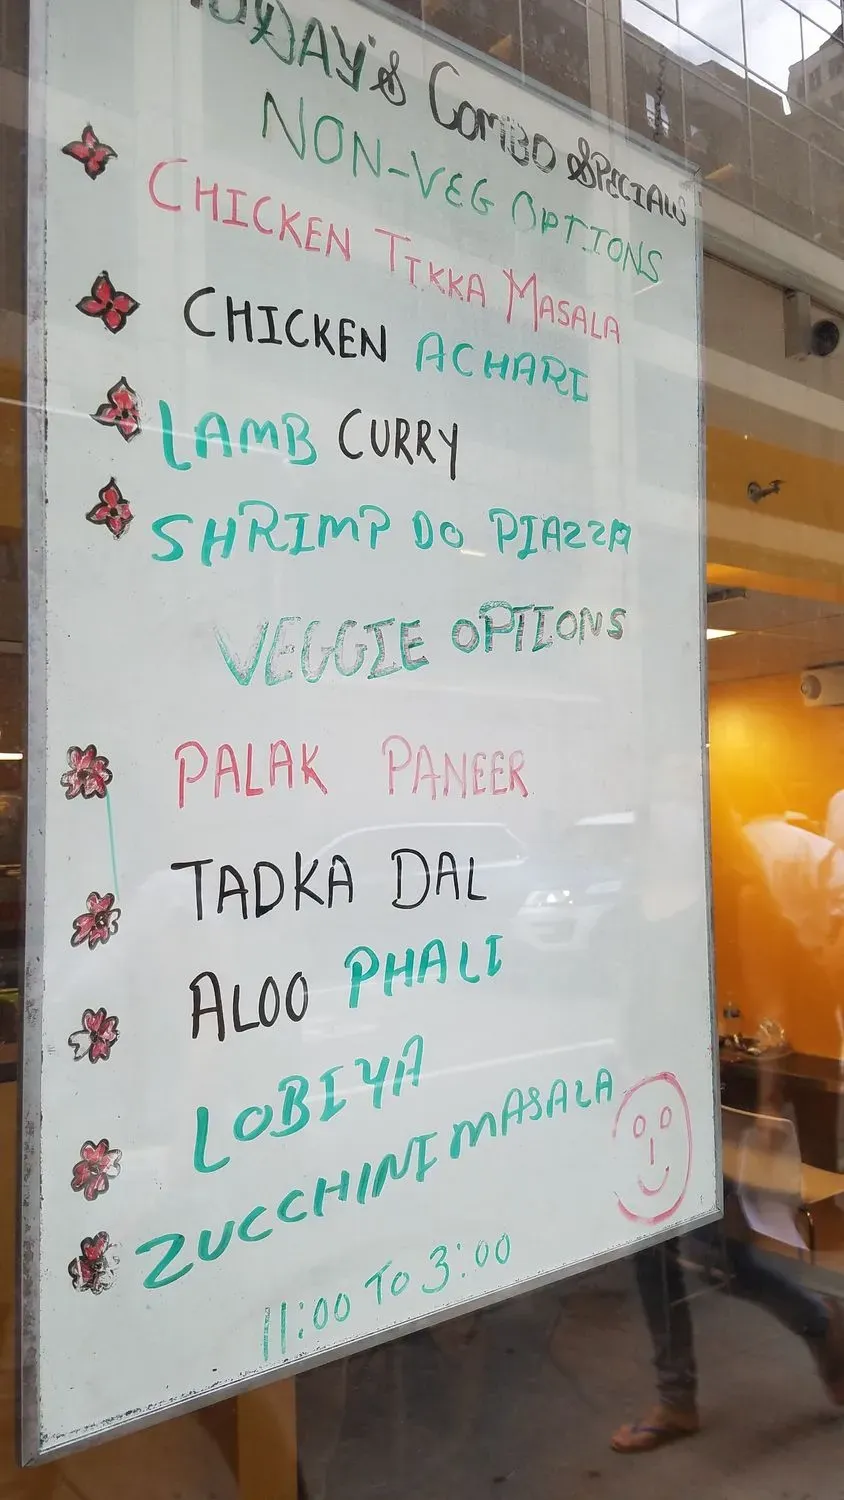 TODAY'S COMBO SPECIALS
NON-VEG OPTIONS
CHICKEN TIKKA MASALA
CHICKEN ACHARI
LAMB CURRY
SHRIMP DO PIAZZA
VEGGIE OPTIONS
PALAK PANEER
TADKA DAL
ALOO PHALI
LOBIYA
ZUCCHINI MASALA
11:00 TO 3:00